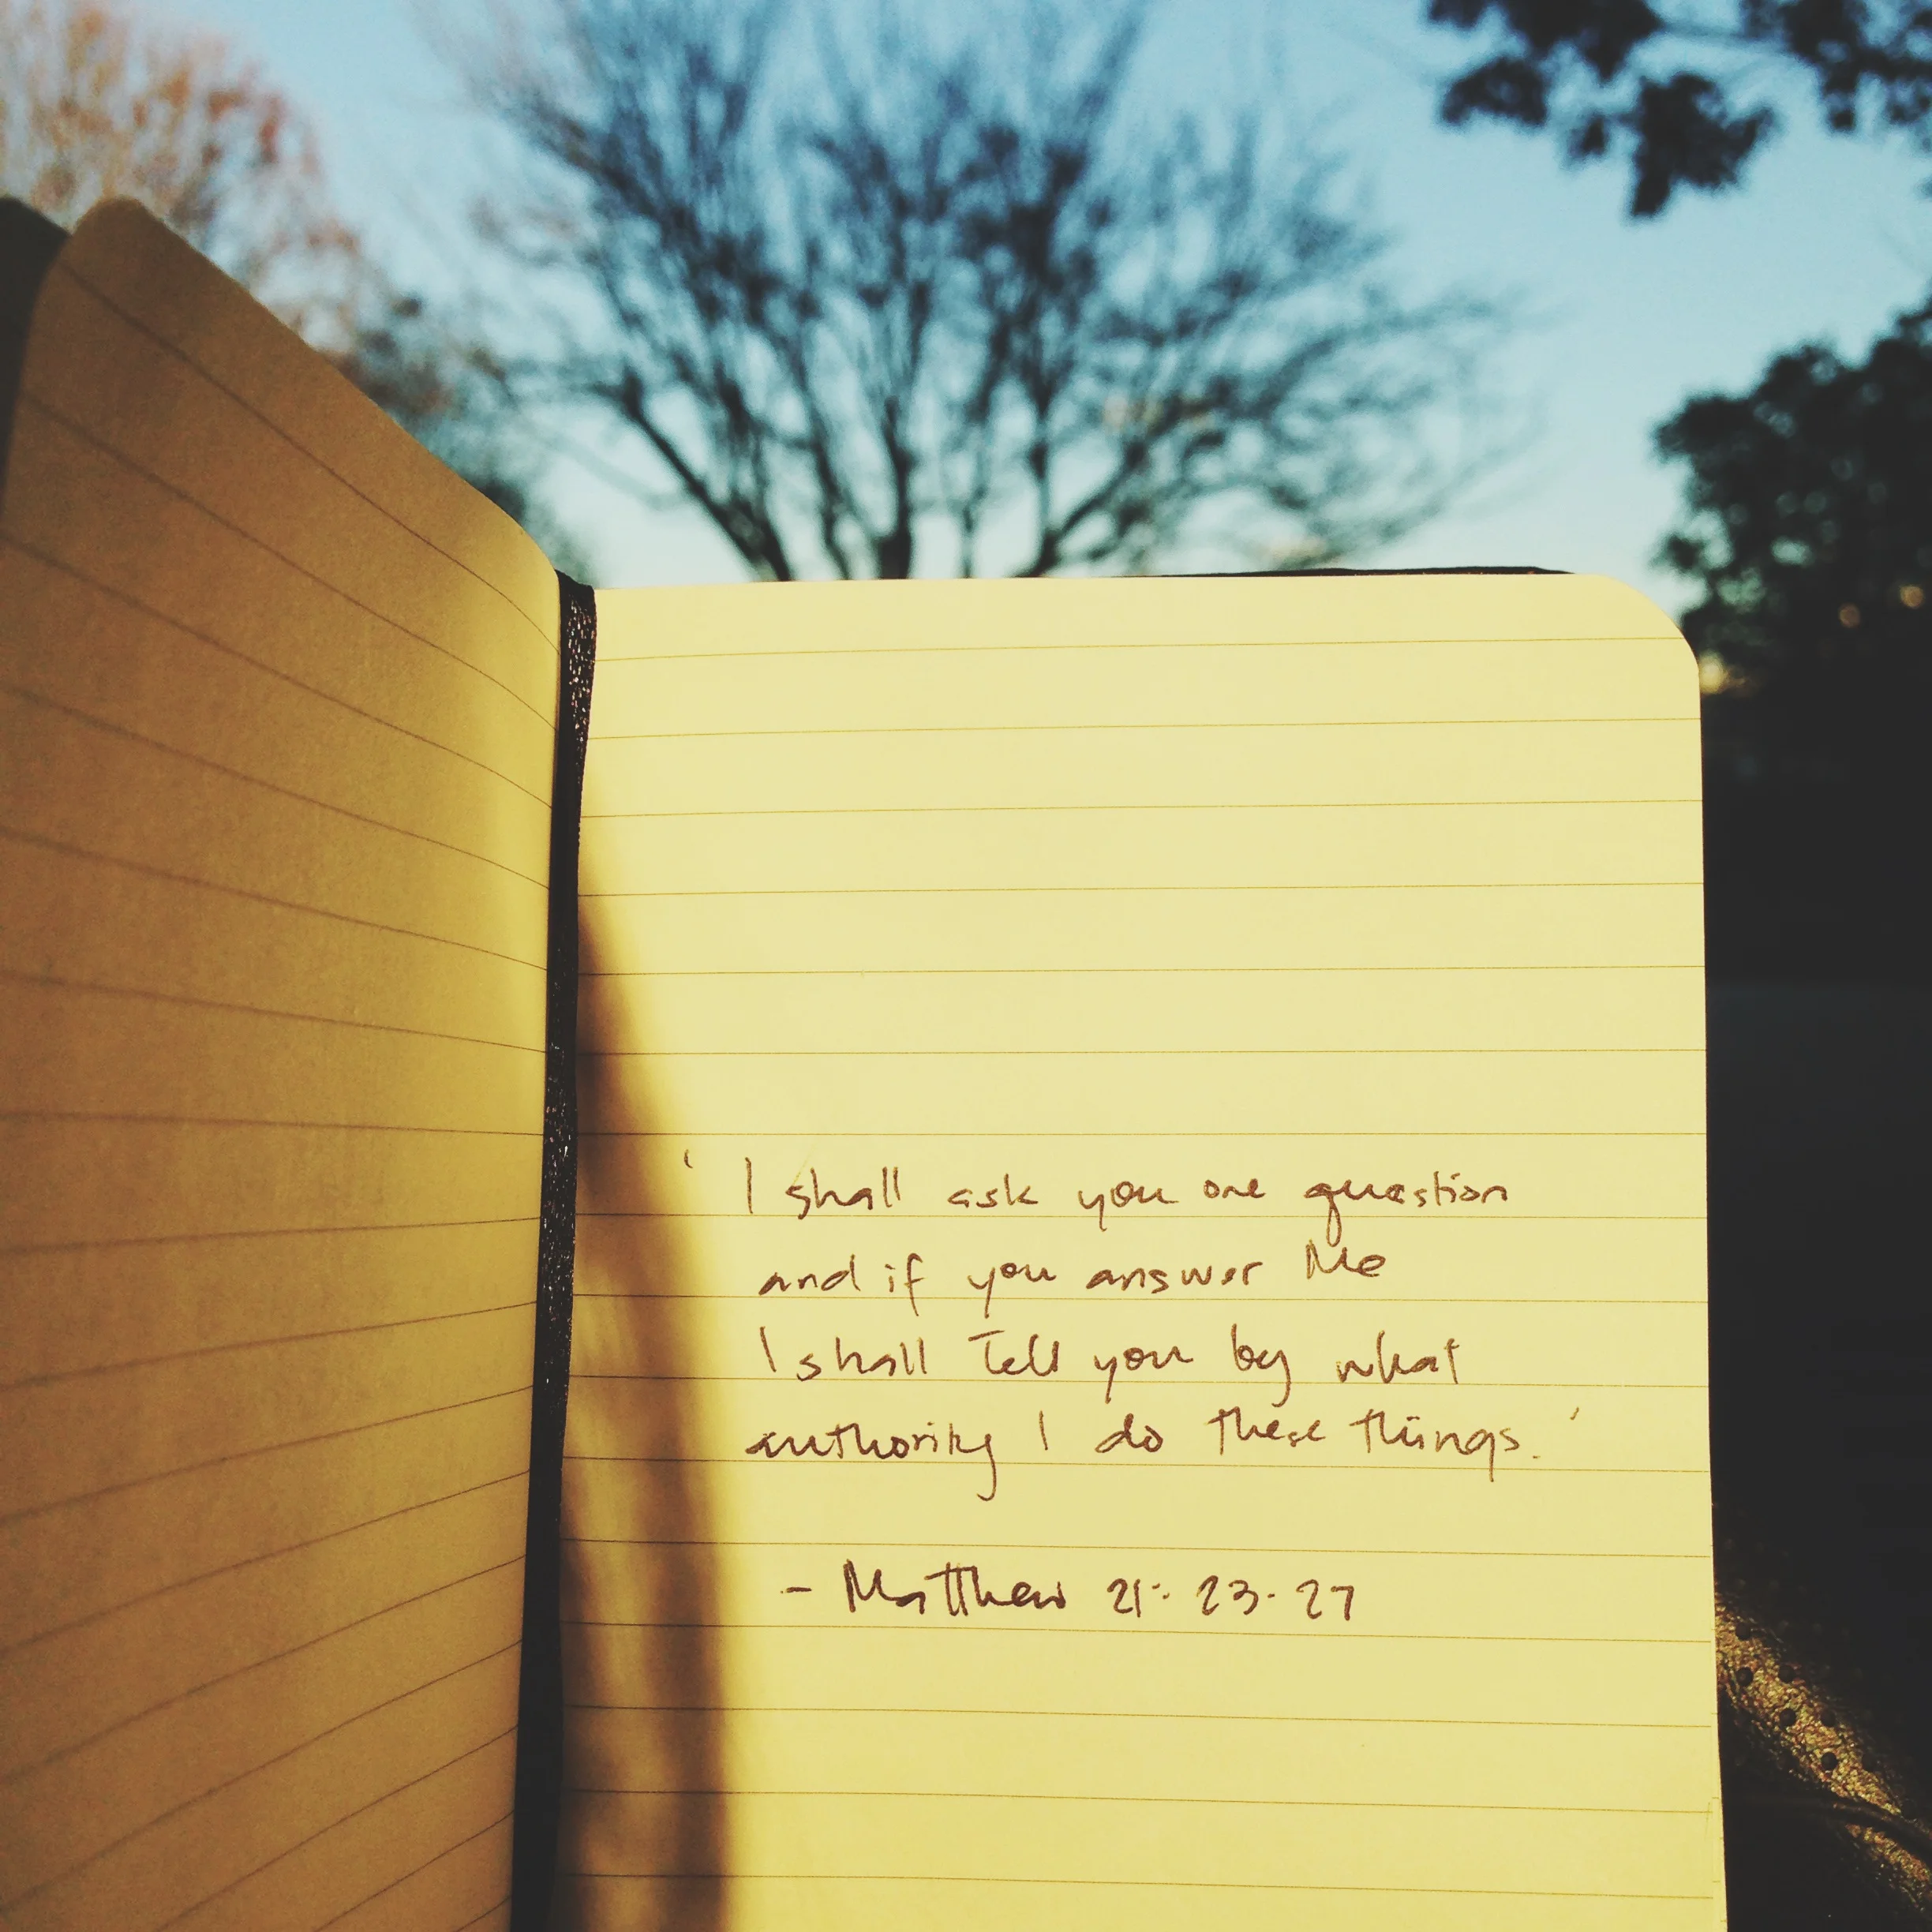 ' I shall ask you one question
and if you answer Me
I shall Tell you by what
authority I do these things. '
- Matthew 21: 23-27